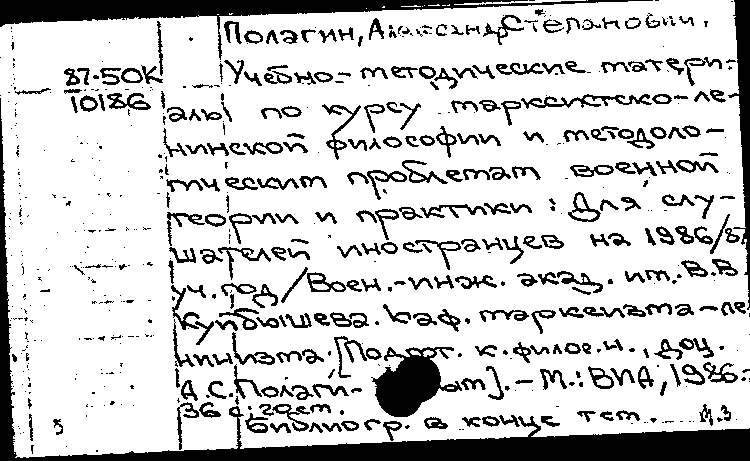 Полагин, Александр Степанович.
87-50К
10186
Учебно-методические матери-
алы по курсу марксистско-ле-
нинской философии и методоло-
гическим проблемам военной
теории и практики: Для слу-
шателей иностранцев на 1986/87
уч. год / Воен.-инж. акад. им. В.В.
Куйбышева. Каф. марксизма-ле
нинизма. [Подгот. к.филос.н., доц.
А.С. Полаги- ым]. – М.: ВИА, 1986.-
36 с; 20 см.
Библиогр. в конце тем.